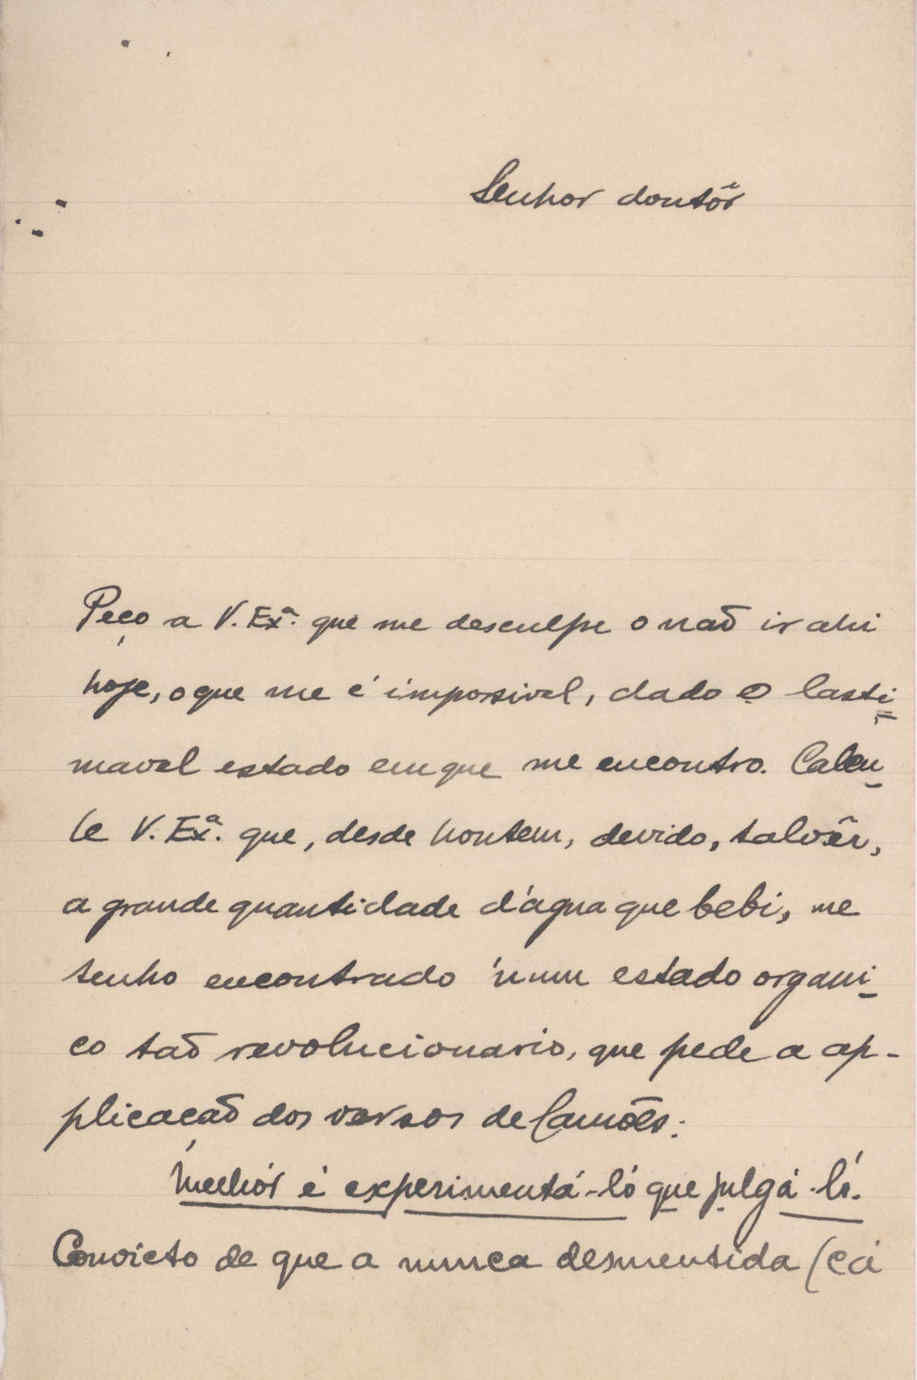 Senhor doutôr
Peço a V. Exª. que me desculpe o naõ ir ahi
hoje, o que me é impossivel, dado o lasti-
mavel estado em que me encontro. Calcu-
le V. Exª. que, desde hontem, devido, talvêz,
a grande quantidade d'água que bebi, me
tenho encontrado n'um estado organi-
co taõ revolucionario, que pede a ap-
plicaçaõ dos versos de Camões:
Melhór é experimentá-ló que julgá-ló.
Convicto de que a nunca desmentida (cá